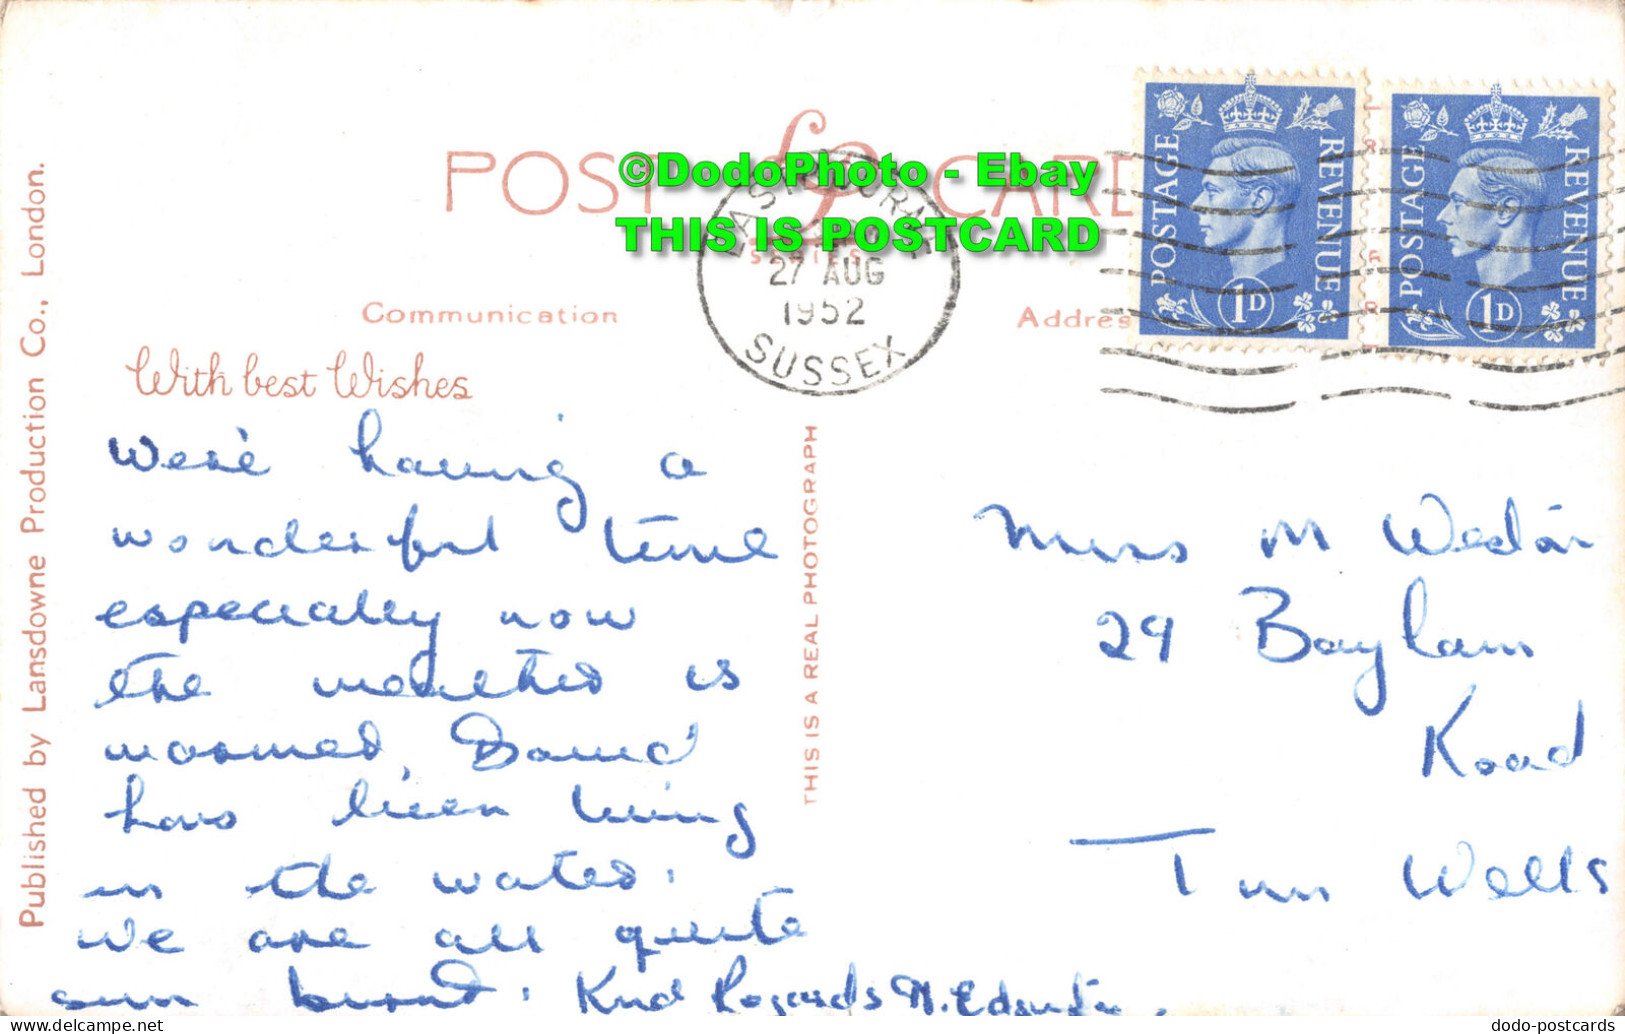 POST CARD
LP
SERIES
©DodoPhoto - Ebay
THIS IS POSTCARD
EASTBOURNE
27 AUG
1952
SUSSEX
POSTAGE REVENUE
1D
POSTAGE REVENUE
1D
Communication
Addres
With best Wishes
We're having a
wonderful time
especially now
the weather is
warmer. David
has been living
in the water.
We are all quite
sun burnt. Kind Regards M.
Miss M Weston
29 Bayham
Road
Tun Wells
THIS IS A REAL PHOTOGRAPH
Published by Lansdowne Production Co., London.
dodo-postcards